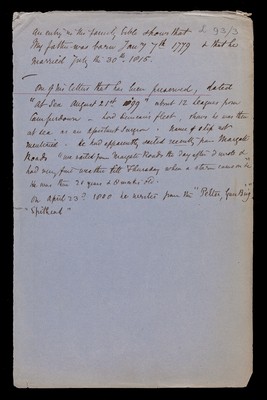 L 93/3
An entry in the family bible shows that
My father was born Jany 7th 1779 & that he
married July the 30th 1815.
One of his letters that has been preserved, dated
"At Sea August 21st 1799" about 12 leagues from
Camperdown - Lord Duncan's fleet, shows he was then
at sea as an assistant Surgeon - name of ship not
mentioned - He had apparently sailed recently from Margate
Roads "we sailed from Margate Roads the day after I wrote &
had very fine weather till Thursday when a storm came on"
He was then 20 years & 8 months old -
On April 23rd 1800 he writes from the "Pelter, Gun Brig"
"Spithead"